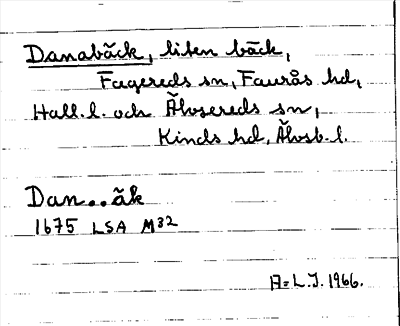 Danabäck, liten bäck,
Fagereds sn, Faurås hd,
Hall. l. och Älvsereds sn,
Kinds hd, Älvsb. l.
Dan..äk
1675 LSA M32
A=L.J. 1966.